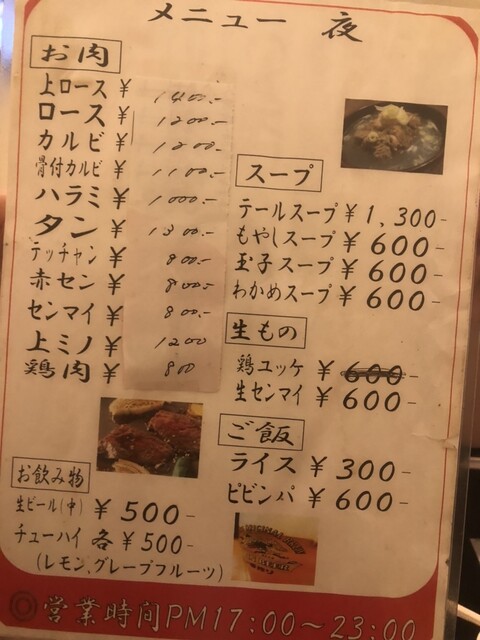 メニュー 夜
お肉
上ロース ¥ 1400.-
ロース ¥ 1200.-
カルビ ¥ 1200.-
骨付カルビ ¥ 1100.-
ハラミ ¥ 1000.-
タン ¥ 1300.-
テッチャン ¥ 800.-
赤セン ¥ 800.-
センマイ ¥ 800.-
上ミノ ¥ 1200
鶏肉 ¥ 800
お飲み物
生ビール(中) ¥ 500-
チューハイ 各 ¥ 500-
(レモン、グレープフルーツ)
スープ
テールスープ ¥ 1,300-
もやしスープ ¥ 600-
玉子スープ ¥ 600-
わかめスープ ¥ 600-
生もの
鶏ユッケ ¥ 600-
生センマイ ¥ 600-
ご飯
ライス ¥ 300-
ビビンバ ¥ 600-
◎営業時間PM17:00~23:00